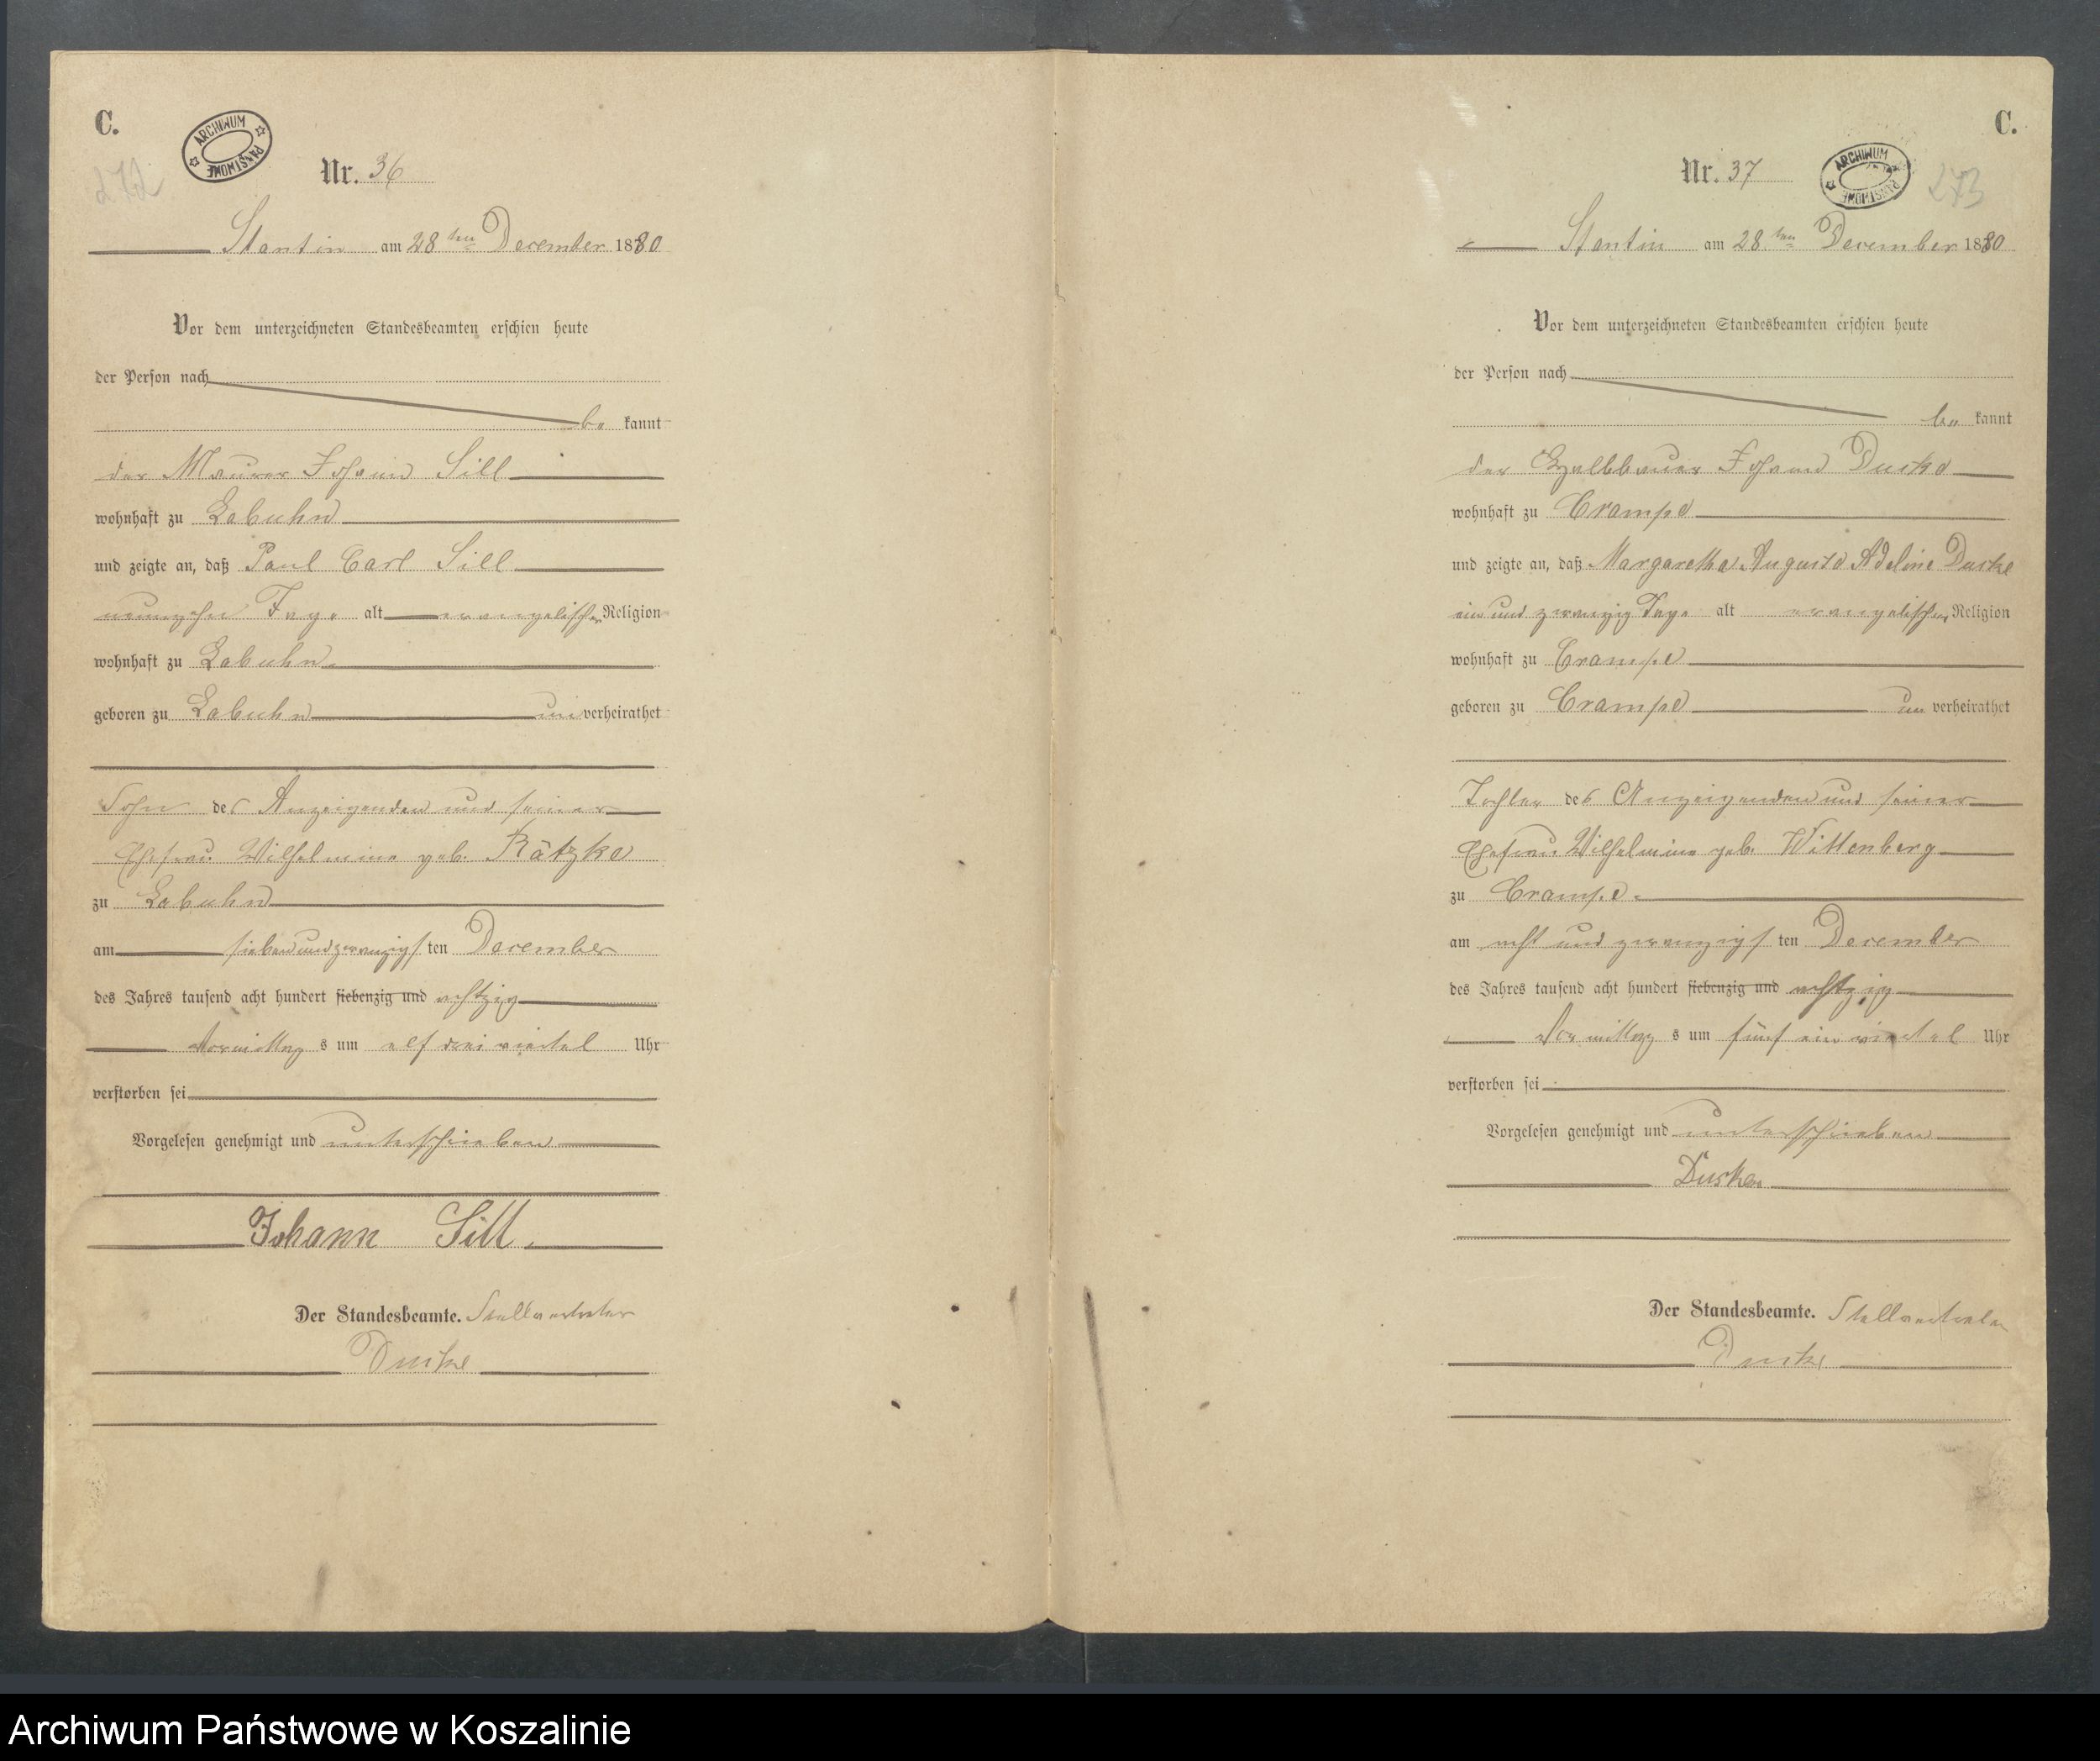 C.
ARCHIWUM PAŃSTWOWE
272
Nr. 36
Stantin am 28ten December 1880
Vor dem unterzeichneten Standesbeamten erschien heute
der Person nach
be kannt
der Maurer Johann Sill
wohnhaft zu Labuhn
und zeigte an, daß Paul Carl Sill
neunzehn Tage alt evangelischer Religion
wohnhaft zu Labuhn
geboren zu Labuhn un verheirathet
Sohn des Anzeigenden und seiner
Ehefrau Wilhelmine geb. Rätzke
zu Labuhn
am siebenundzwanzigsten December
des Jahres tausend acht hundert siebenzig und achtzig
Vormittags um elf dreiviertel Uhr
verstorben sei
Vorgelesen genehmigt und unterschrieben
Johann Sill.
Der Standesbeamte. Stellvertreter
Duske
C.
Nr. 37
ARCHIWUM PAŃSTWOWE
273
Stantin am 28ten December 1880
Vor dem unterzeichneten Standesbeamten erschien heute
der Person nach
be kannt
der Halbbauer Johann Duske
wohnhaft zu Crampe
und zeigte an, daß Margaretha Auguste Adeline Duske
ein und zwanzig Tage alt evangelischer Religion
wohnhaft zu Crampe
geboren zu Crampe un verheirathet
Tochter des Anzeigenden und seiner
Ehefrau Wilhelmine geb. Wittenberg
zu Crampe
am acht und zwanzigsten December
des Jahres tausend acht hundert siebenzig und achtzig
Vormittags um fünf ein viertel Uhr
verstorben sei
Vorgelesen genehmigt und unterschrieben
Duske
Der Standesbeamte. Stellvertreter
Duske
Archiwum Państwowe w Koszalinie